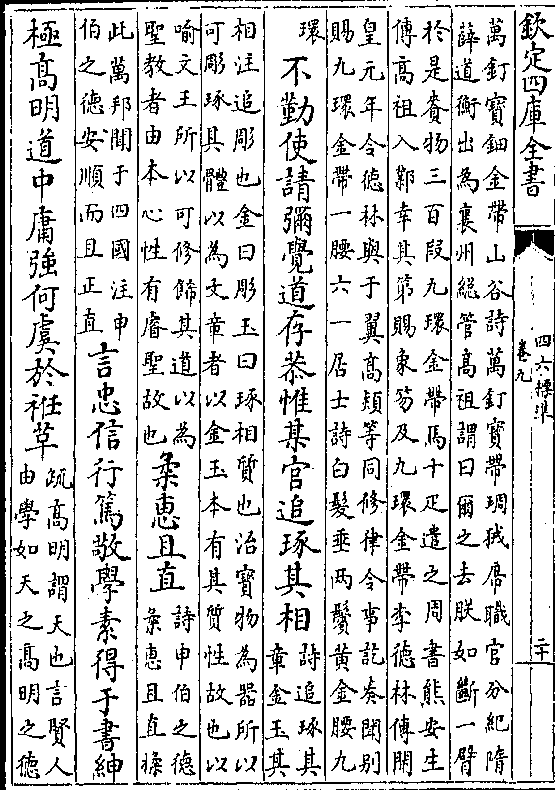 欽定四庫全書
四六標準
卷九
二十
萬釘寶鈿金帶山谷詩萬釘寶帶琱狨席職官分紀隋
薛道衡出為襄州總管髙祖謂曰爾之去朕如斷一臂
於是賚物三百叚九環金帶馬十疋遣之周書熊安生
傳髙祖入鄴幸其第賜象笏及九環金帶李德林傳開
皇元年令德林與于翼髙熲等同修律令事訖奏聞别
賜九環金帶一腰六一居士詩白髪垂两鬢黄金腰九
環
不勤使請彌覺道存恭惟某官追琢其相
詩追琢其
章金玉其
相注追彫也金曰彫玉曰琢相質也治寳物為器所以
可彫琢其體以為文章者以金玉本有其質性故也以
喻文王所以可修飾其道以為
聖教者由本心性有睿聖故也
柔惠且直
詩申伯之德
柔惠且直揉
此萬邦聞于四國注申
伯之德安順而且正直
言忠信行篤敬學素得于書紳
極髙明道中庸強何虞於袵革
疏髙明謂天也言賢人
由學如天之髙明之德